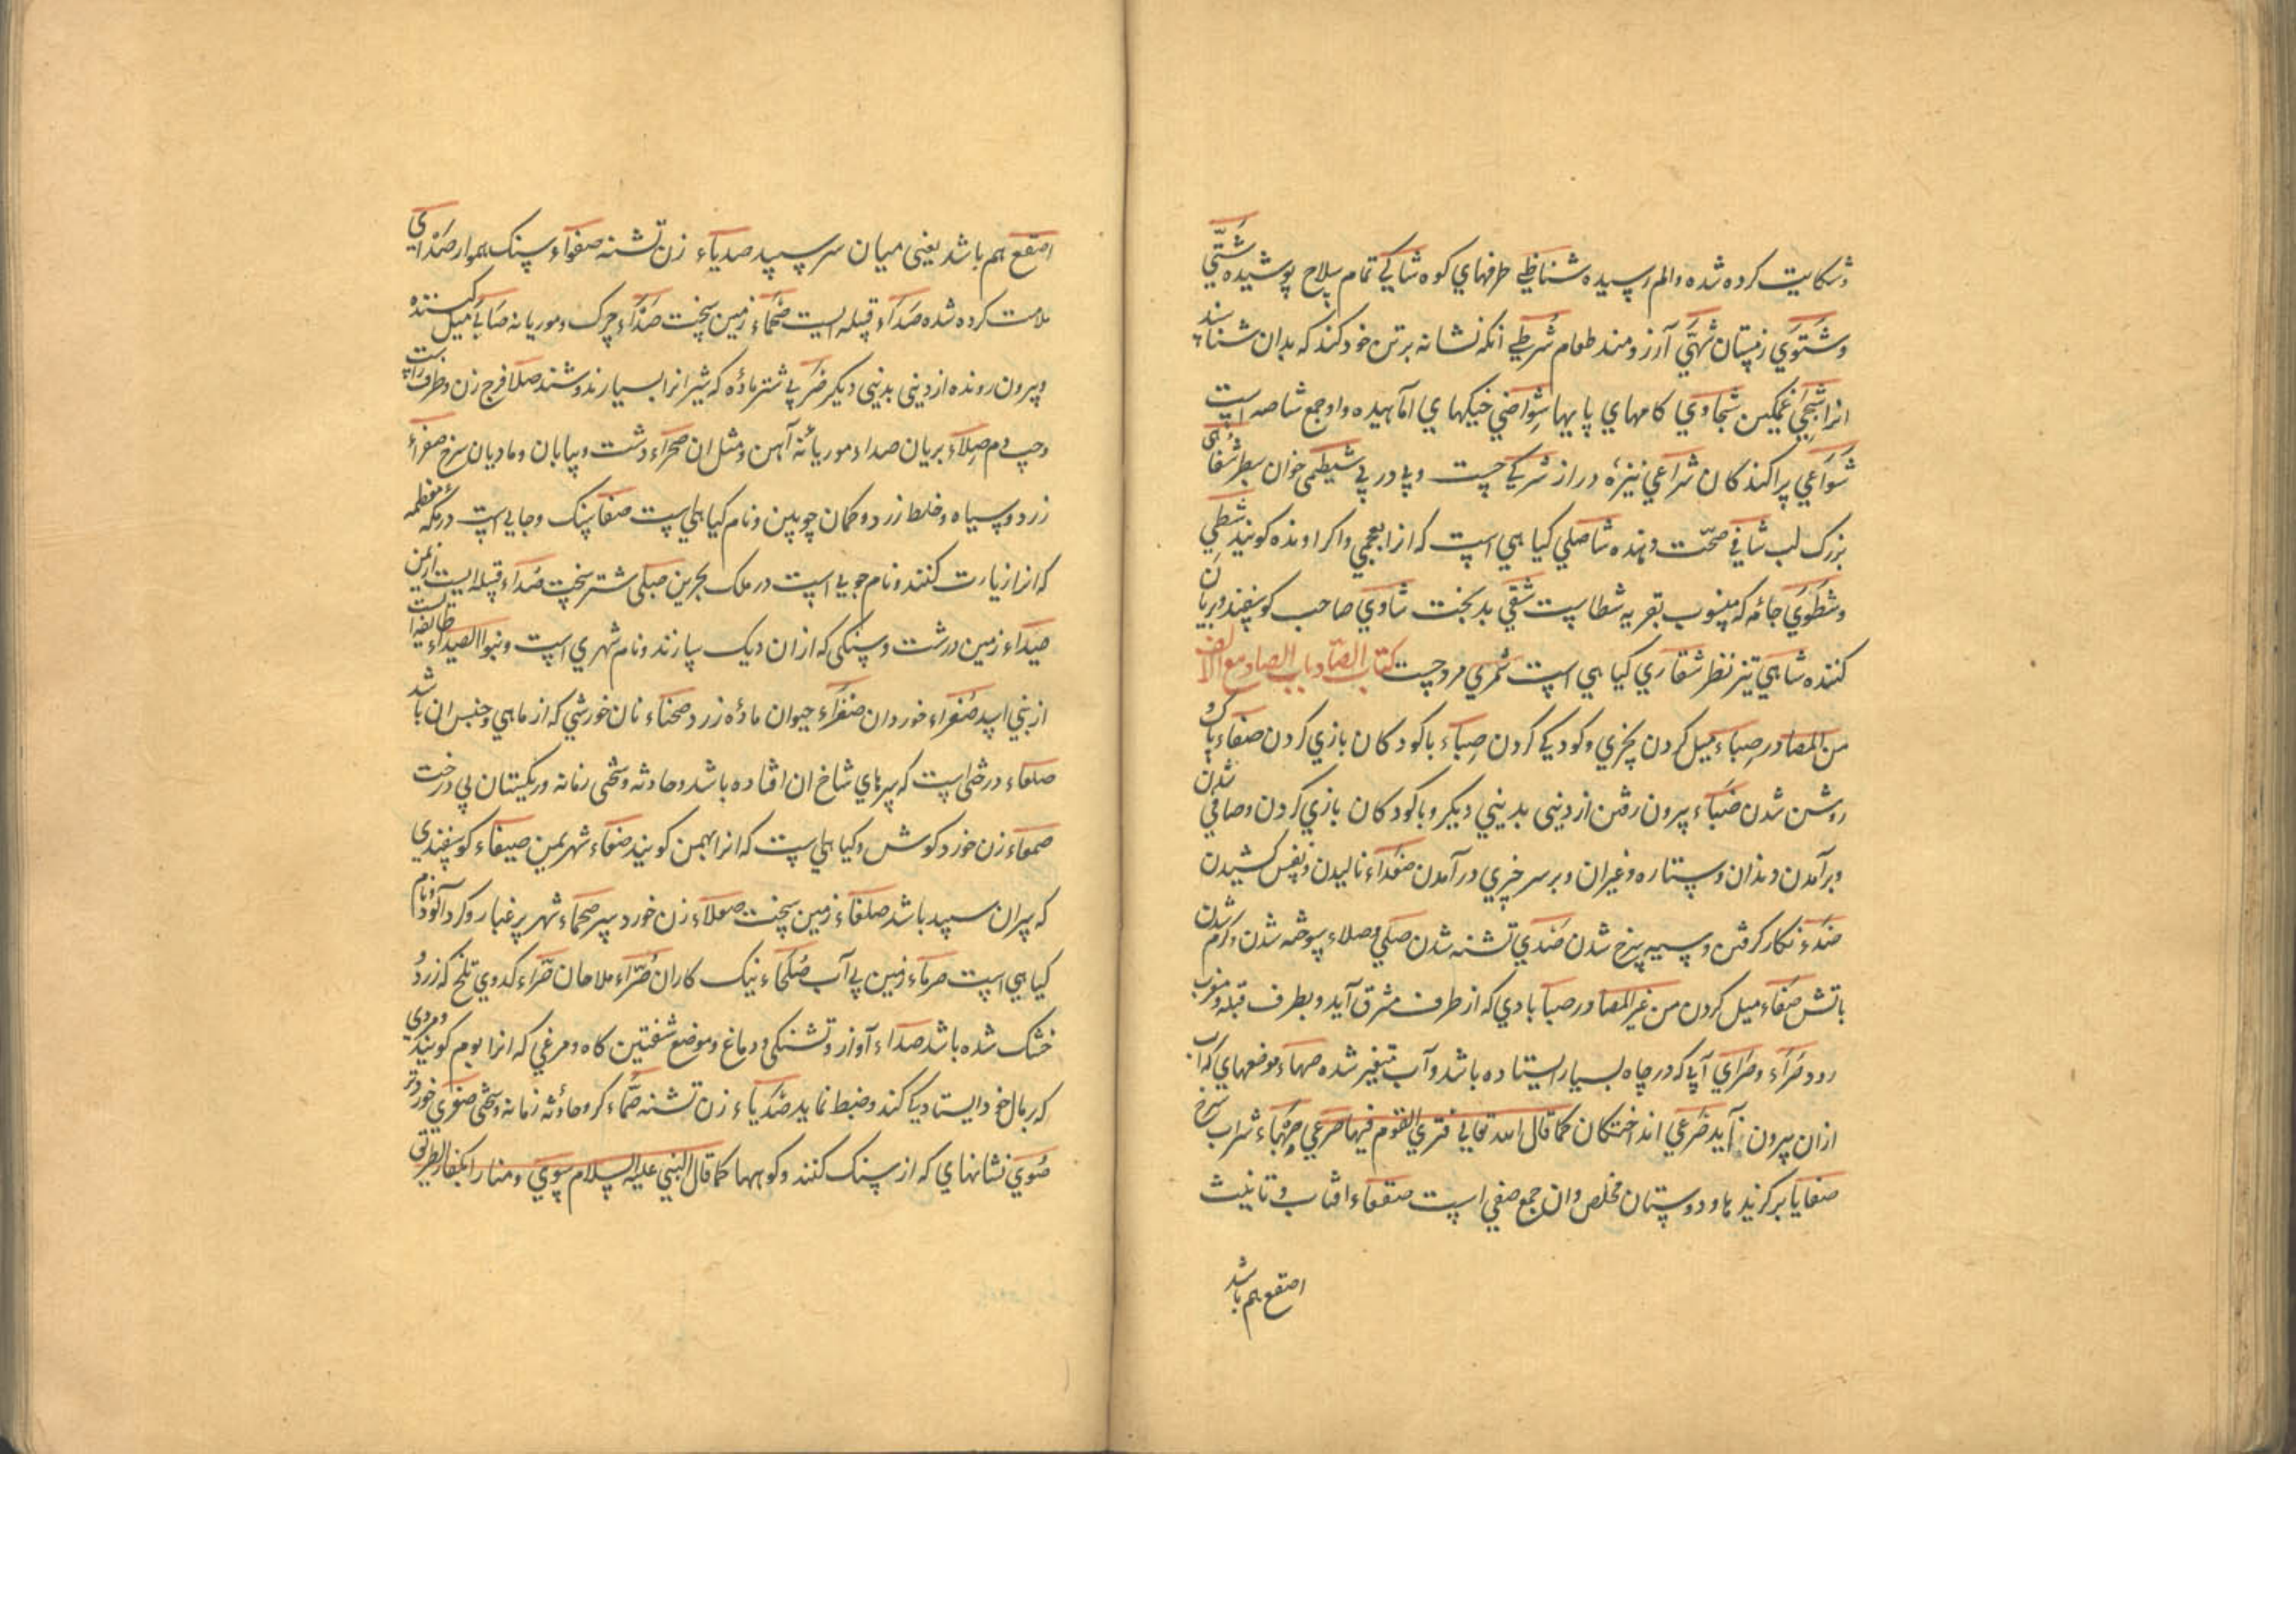 وشکایت کرده شده والم رسیده شناظی طرفهاي کوه شاکي تمام سلاح پوشیده شتّي
وشتوي زمستان شهّي آرزومند طعام شرطي انکه نشانه برتن خود کند که بدان شناسند
انرا شجي غمکین شجاوي کامهاي پایها شواصي خیکهاي اماهیده واو جمع شاصه است
شواعي پراکندکان شراعي نیزه دراز شریکي چست وپي در پي شیظمي جوان سطبر شفاهي
بزرک لب شافي صحّت دهنده شاصلي کیاهي است که انرا بعجمي واکراونده کویند شطي
وشطوي جامه که منسوب بقریه شطاست شقي بدبخت شاوي صاحب کوسفند وبریان
کننده شاهي تیز نظر شقاري کیاهي است شمري مرد چست کتاب الصّاد باب الصاد مع الالف
من المصادر صباء میل کردن بچیزي وکودکي کردن صباء باکودکان بازي کردن صفاء پاک و
روشن شدن صباء بیرون رفتن از دیني بدیني دیکر وباکودکان بازي کردن وصافي شدن
وبرآمدن دندان وستاره وغیران وبرسر چیزي درآمدن صعداء نالیدن ونفس کشیدن
صداء زنکار کرفتن وسیه سرخ شدن صدي تشنه شدن صلي وصلاء سوخته شدن وکرم شدن
باتش صغاء میل کردن من غیر المصادر صبا بادي که از طرف مشرق آید وبطرف قبله ومغرب
رود صراء وصراي آبي که در چاه بسیار ایستاده باشد وآب متغیر شده صهاء موضعهاي که آب
ازان بیرون آید صرعي انداختکان کما قال الله تعالي فتري القوم فیها صرعي صهباء شراب سرخ
صفایا برکزیدها ودوستان مخلص وان جمع صفي است صقعاء افتاب وتانیث
اصقع هم باشد
اصقع هم باشد یعني میان سر سپید صدیاء زن تشنه صفواء سنک هموار صداي
ملامت کرده شده صداء قبیله ایست صحماء زمین سخت صداء چرک وموریانه صابي میل کننده
وبیرون رونده از دیني بدیني دیکر صربي شتر ماده که شیر انرا بسیار ندوشند صلا فرج زن وطرف راست
وچپ دم صلاء بریان صداء موریانه آهن ومثل ان صحراء دشت وبیابان ومادیان سرخ صفراء
زرد وسیاه وخلط زرد وکمان چوبین ونام کیاهي است صفا سنک وجایي است در مکه معظمه
که انرا زیارت کنند ونام جویي است در ملک بحرین صبلي شتر سخت صداء قبیله ایست از یمن
صیداء زمین درشت وسنکي که ازان دیک سازند ونام شهري است وبنوا الصیداء طایفه است
از بني اسد صغراء خوردان صفراء حیوان ماده زرد صحناء نان خورشي که از ماهي وجنس ان باشد
صلعاء درختي است که سرهاي شاخ ان افتاده باشد وحادثه وسختي زمانه وریکستان بي درخت
صمعاء زن خورد کوش وکیاهي است که انرا بهمن کویند صنعاء شهر یمن صبغاء کوسفندي
که پران سپید باشد صلفاء زمین سخت صعلاء زن خورد سر صحماء شهر پر غبار وکردآلود ونام
کیاهي است صرماء زمین بي آب صلحاء نیک کاران صرّاء ملاحان صراء کدوي تلخ که زرد و
خشک شده باشد صداء آواز وتشنکي ودماغ وموضع شنفتین کاه ومرغي که انرا بوم کویند ومردي
که برمال خود ایستادیکي کند وضبط نماید صدیاء زن تشنه صمّاء کر وحادثه زمانه وسختي صغري خوردتر
صوي نشانهاي که از سنک کنند وکوهها کما قال النبي علیه السلام صوي ومنارا کمنار الطریق